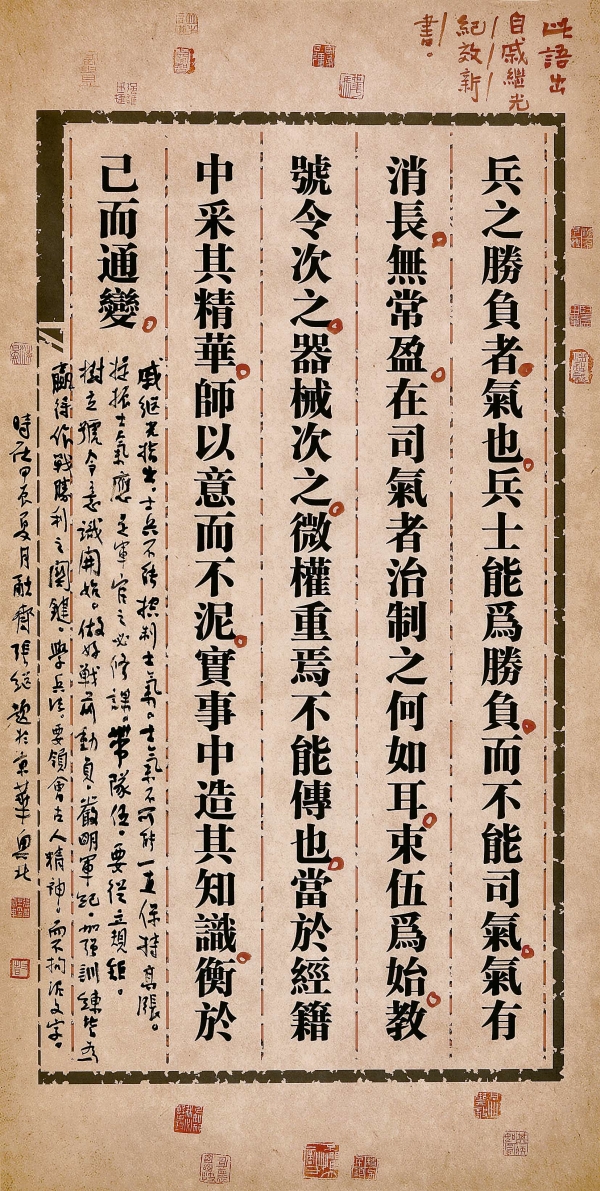 此語出
自戚繼光
紀效新
書。
兵之勝負者氣也兵士能爲勝負而不能司氣氣有
消長無常盈在司氣者治制之何如耳束伍爲始教
號令次之器械次之微權重焉不能傳也當於經籍
中采其精華師以意而不泥實事中造其知識衡於
己而通變
戚繼光指出,士兵不能控制士氣。士氣不可能一直保持高漲。
提振士氣應是軍官之必修課。帶隊伍,要從立規矩。
樹立號令意識開始。做好戰前動員,嚴明軍紀,加強訓練皆爲
贏得作戰勝利之關鍵。學兵法,要領會古人精神,而不拘泥文字。
時在甲辰夏月融齋張繼題於京華奧北